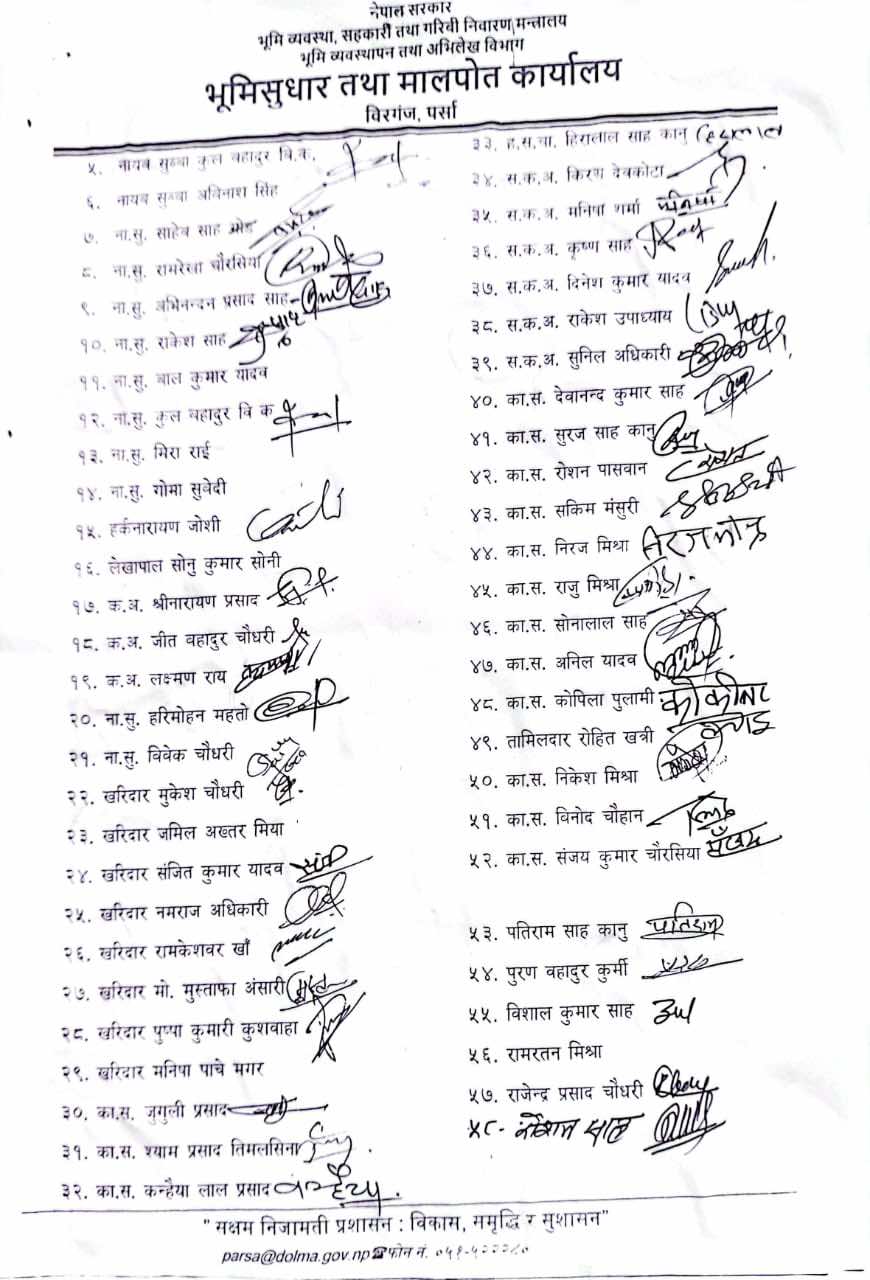 नेपाल सरकार
भूमि व्यवस्था, सहकारी तथा गरिवी निवारण मन्त्रालय
भूमि व्यवस्थापन तथा अभिलेख विभाग
भूमिसुधार तथा मालपोत कार्यालय
विरगंज, पर्सा
५. नायब सुब्बा कुल बहादुर वि.क.
६. नायब सुब्बा अविनाश सिंह
७. ना.सु. साहेब साह
८. ना.सु. रामरेखा चौरसिया
९. ना.सु. अभिनन्दन प्रसाद साह
१०. ना.सु. राकेश साह
११. ना.सु. बाल कुमार यादव
१२. ना.सु. कुल बहादुर वि क
१३. ना.सु. मिरा राई
१४. ना.सु. गोमा सुवेदी
१५. हर्कनारायण जोशी
१६. लेखापाल सोनु कुमार सोनी
१७. क.अ. श्रीनारायण प्रसाद
१८. क.अ. जीत वहादुर चौधरी
१९. क.अ. लक्ष्मण राय
२०. ना.सु. हरिमोहन महतो
२१. ना.सु. विवेक चौधरी
२२. खरिदार मुकेश चौधरी
२३. खरिदार जमिल अख्तर मिया
२४. खरिदार संजित कुमार यादव
२५. खरिदार नमराज अधिकारी
२६. खरिदार रामकेशवर खाँ
२७. खरिदार मो. मुस्ताफा अंसारी
२८. खरिदार पुष्पा कुमारी कुशवाहा
२९. खरिदार मनिषा पाचे मगर
३०. का.स. जुगुली प्रसाद
३१. का.स. श्याम प्रसाद तिमलसिना
३२. का.स. कन्हैया लाल प्रसाद कन्हैया
३३. ह.स.चा. हिरालाल साह कानु
३४. स.क.अ. किरण देवकोटा
३५. स.क.अ. मनिषा शर्मा
३६. स.क.अ. कृष्ण साह
३७. स.क.अ. दिनेश कुमार यादव
३८. स.क.अ. राकेश उपाध्याय
३९. स.क.अ. सुनिल अधिकारी
४०. का.स. देवानन्द कुमार साह
४१. का.स. सुरज साह कानु
४२. का.स. रोशन पासवान
४३. का.स. सकिम मंसुरी
४४. का.स. निरज मिश्रा
४५. का.स. राजु मिश्रा
४६. का.स. सोनालाल साह
४७. का.स. अनिल यादव
४८. का.स. कोपिला पुलामी
४९. तामिलदार रोहित खत्री
५०. का.स. निकेश मिश्रा
५१. का.स. विनोद चौहान
५२. का.स. संजय कुमार चौरसिया
५३. पतिराम साह कानु
५४. पुरण वहादुर कुर्मी
५५. विशाल कुमार साह
५६. रामरतन मिश्रा
५७. राजेन्द्र प्रसाद चौधरी
५८-
"सक्षम निजामती प्रशासन : विकास, समृद्धि र सुशासन"
parsa@dolma.gov.np ☎फोन नं.